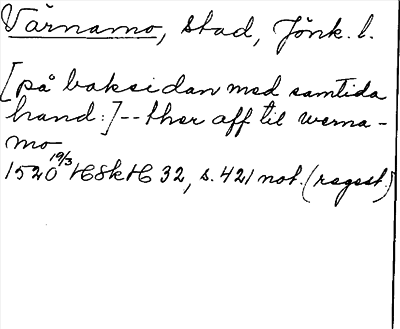 Värnamo, stad, Jönk. l.
[på baksidan med samtida
hand:] -- ther aff til werna-
mo
1520 19/3 HSkH 32, s. 421 not. (regest)